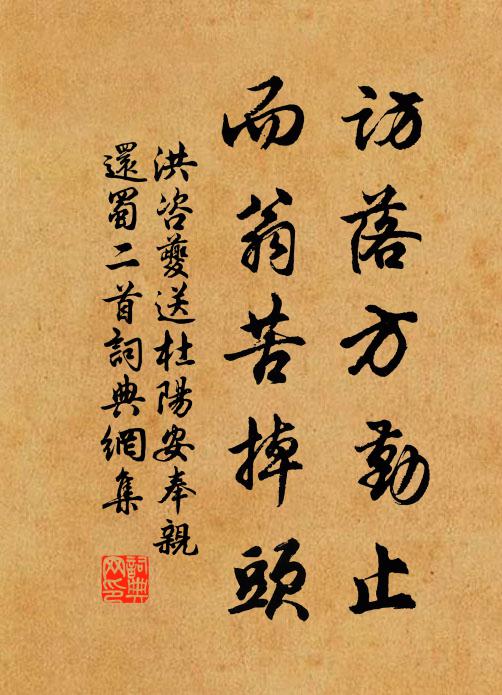 訪落方勤止
而翁苦掉頭
洪咨夔送杜陽安奉親
還蜀二首詞典網集
詞典
网印